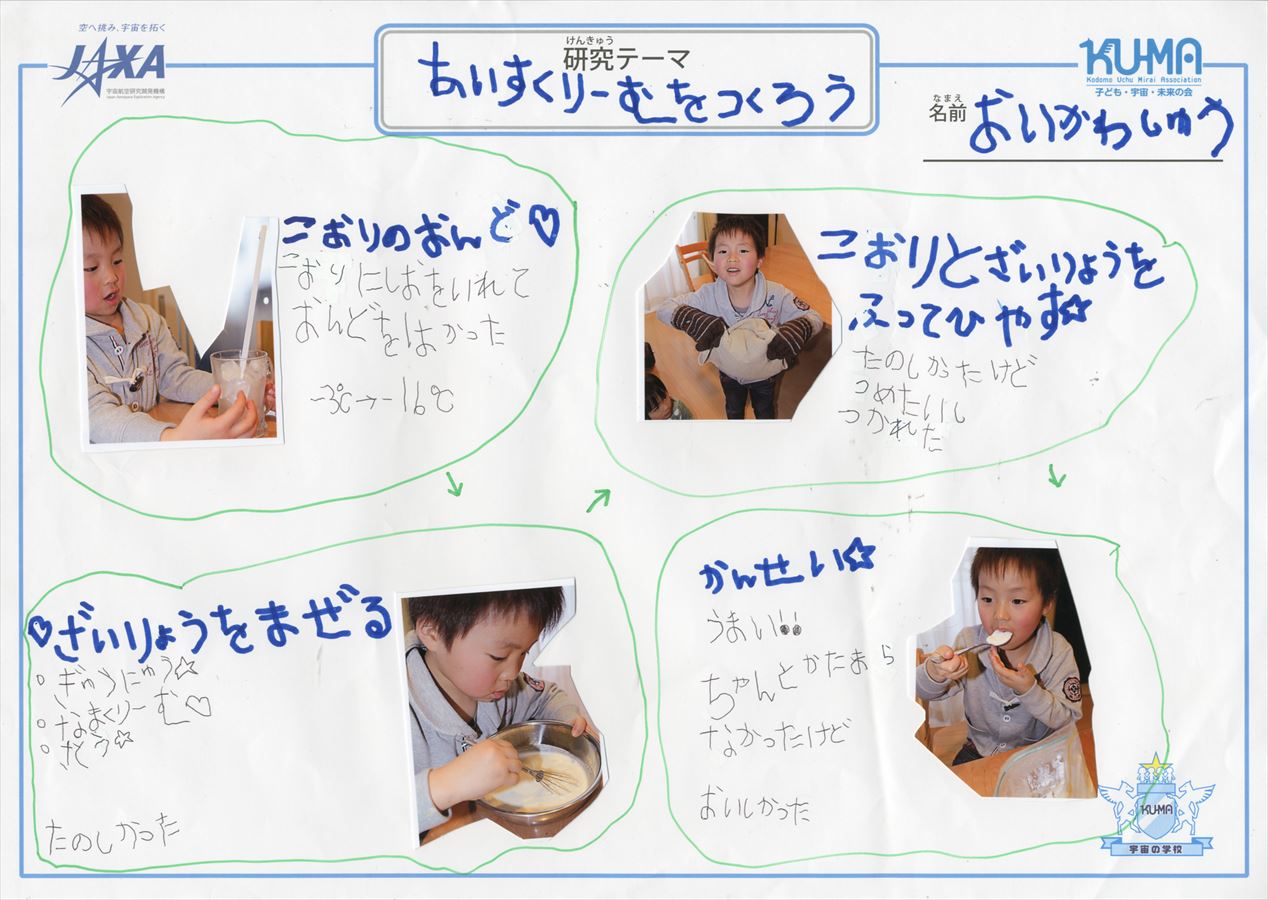 空へ挑み、宇宙を拓く
JAXA
宇宙航空研究開発機構
Japan Aerospace Exploration Agency
けんきゅう
研究テーマ
あいすくりーむをつくろう
KU-MA
Kodomo Uchu Mirai Association
子ども・宇宙・未来の会
なまえ
名前
おいかわしゅう
こおりのおんど♡
こおりにしおをいれて
おんどをはかった
-3℃→-16℃
♡ざいりょうをまぜる
・ぎゅうにゅう☆
・なまくりーむ♡
・さとう☆
たのしかった
こおりとざいりょうを
ふってひやす☆
たのしかったけど
つめたいし
つかれた
かんせい☆
うまい!!
ちゃんとかたまら
なかったけど
おいしかった
KU-MA
宇宙の学校